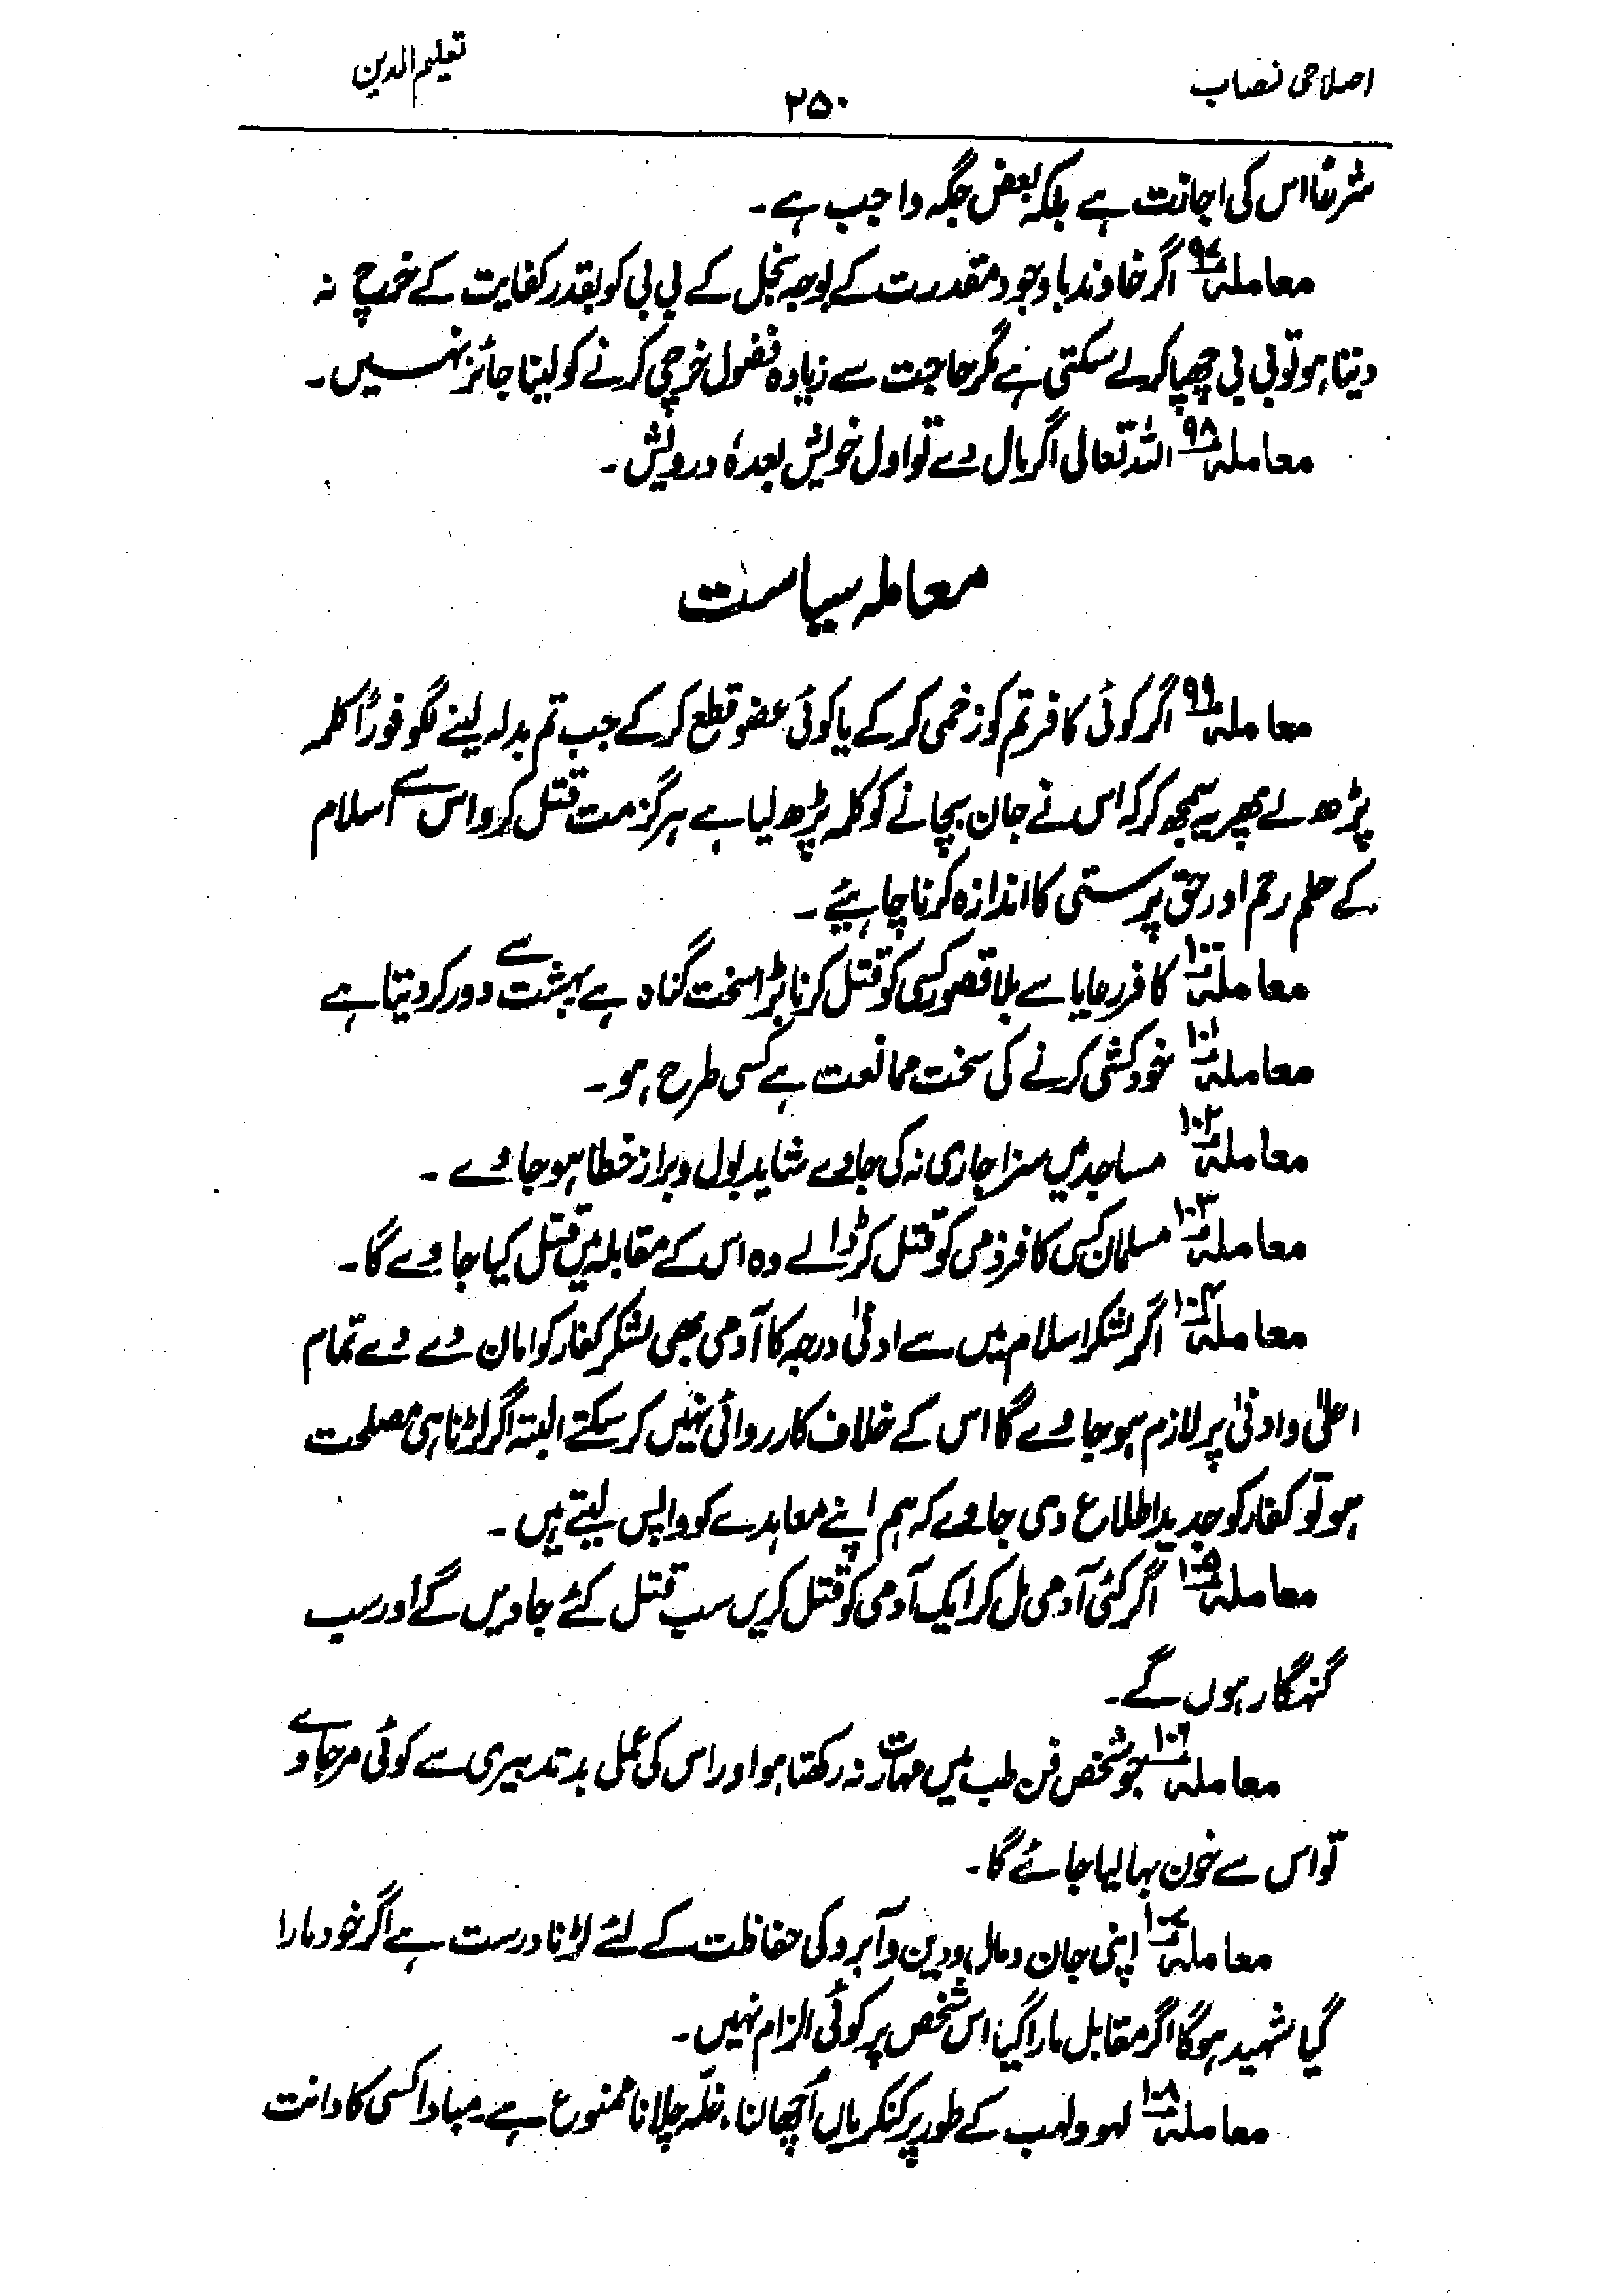 اصلاحی نصاب
۲۵۰
تعلیم الدین
شرعًا اس کی اجازت ہے بلکہ بعض جگہ واجب ہے۔
معاملہ ۹۷ اگر خاوند باوجود مقدرت کے بوجہ بخل کے بی بی کو بقدر کفایت کے خرچ نہ
دیتا ہو تو بی بی چھپا کر لے سکتی ہے مگر حاجت سے زیادہ فضول خرچی کرنے کو لینا جائز نہیں۔
معاملہ ۹۸ اللہ تعالی اگر مال دے تو اول خویش بعدہٗ درویش۔
معاملہ سیاست
معاملہ ۹۹ اگر کوئی کافر تم کو زخمی کر کے یا کوئی عضو قطع کر کے جب تم بدلہ لینے لگو فورًا کلمہ
پڑھ لے پھر یہ سمجھ کر کہ اس نے جان بچانے کو کلمہ پڑھ لیا ہے ہرگز مت قتل کرو اس سے اسلام
کے حلم رحم اور حق پرستی کا اندازہ کرنا چاہیئے۔
معاملہ ۱۰۰ کافر رعایا سے بلا قصور کسی کو قتل کرنا بڑا سخت گناہ ہے بہشت سے دور کر دیتا ہے
معاملہ ۱۰۱ خود کشی کرنے کی سخت ممانعت ہے کسی طرح ہو۔
معاملہ ۱۰۲ مساجد میں سزا جاری نہ کی جاوے شاید بول و براز خطا ہو جاوے۔
معاملہ ۱۰۳ مسلمان کسی کافر ذمی کو قتل کر ڈالے وہ اس کے مقابلہ میں قتل کیا جاوے گا۔
معاملہ ۱۰۴ اگر لشکر اسلام میں سے ادنیٰ درجہ کا آدمی بھی لشکر کفار کو امان دے دے تمام
اعلیٰ و ادنیٰ پر لازم ہو جاوے گا اس کے خلاف کارروائی نہیں کر سکتے البتہ اگر لڑنا ہی مصلحت
ہو تو کفار کو جدید اطلاع دی جاوے کہ ہم اپنے معاہدے کو واپس لیتے ہیں۔
معاملہ ۱۰۵ اگر کئی آدمی مل کر ایک آدمی کو قتل کریں سب قتل کئے جاویں گے اور سب
گنہگار ہوں گے۔
معاملہ ۱۰۶ جو شخص فن طب میں مہارت نہ رکھتا ہو اور اس کی عمل بد تدبیری سے کوئی مر جاوے
تو اس سے خون بہا لیا جائے گا۔
معاملہ ۱۰۷ اپنی جان و مال و دین و آبرو کی حفاظت کے لئے لڑنا درست ہے اگر خود مارا
گیا شہید ہوگا اگر مقابل مارا گیا اس شخص پر کوئی الزام نہیں۔
معاملہ ۱۰۸ لہو ولعب کے طور پر کنکریاں اُچھالنا، غلّہ چلانا ممنوع ہے۔ مبادا کسی کا دانت